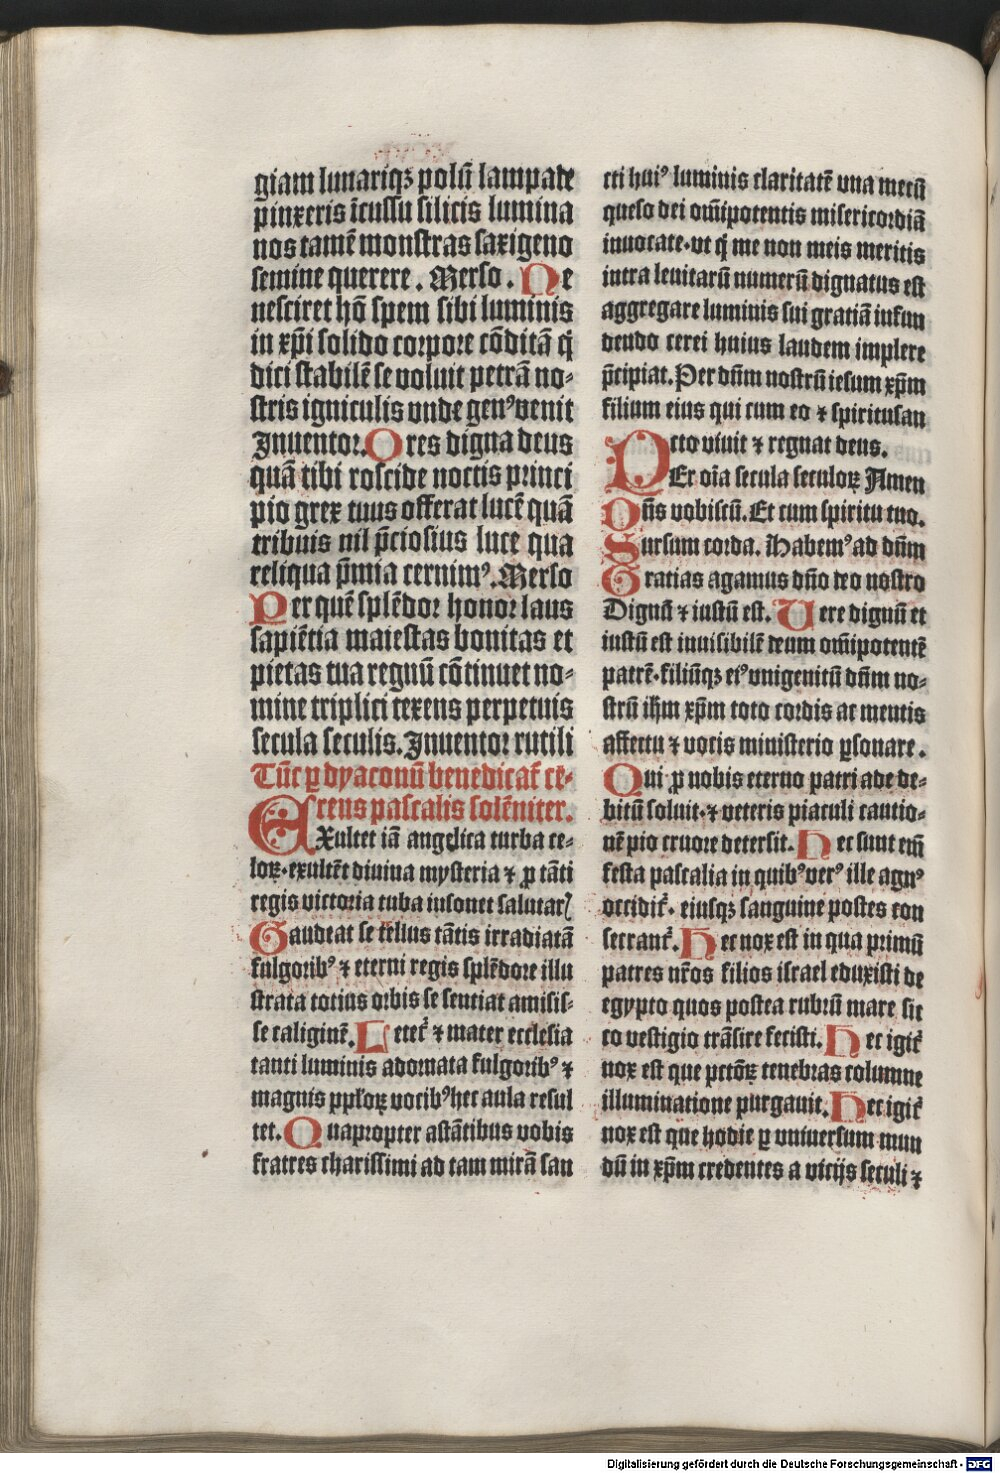 giam lunariqꝫ polū lampade
pinxeris īcussu silicis lumina
nos tamē monstras saxigeno
semine querere. Merso. Ne
nesciret hō spem sibi luminis
in xp̄i solido corpore cōditā q̄
dici stabilē se voluit petrā no⸗
stris igniculis vnde genꝰ venit
Inuentor. O res digna deus
quā tibi roscide noctis princi
pio grex tuus offerat lucē quā
tribuis nil p̄ciosius luce qua
reliqua p̄mia cernimꝰ. Merso
Per quē splēdor honor laus
sapiētia maiestas bonitas et
pietas tua regnū cōtinuet no⸗
mine triplici texens perpetuis
secula seculis. Inuentor rutili
Tūc ꝑ dyaconū benedicat᷑ ce⸗
reus pascalis solēniter.
EXultet iā angelica turba ce⸗
loꝝ·exultēt diuina mysteria ⁊ ꝓ tāti
regis victoria tuba insonet salutarꝭ
Gaudeat se tellus tātis irradiatā
fulgoribꝰ ⁊ eterni regis splēdore illu
strata totius orbis se sentiat amisis⸗
se caliginē. Letet᷑ ⁊ mater ecclesia
tanti luminis adornata fulgoribꝰ ⁊
magnis ppl'oꝝ vocibꝰ hec aula resul
tet. Quapropter astātibus vobis
fratres charissimi ad tam mirā san
cti huiꝰ luminis claritatē vna mecū
queso dei om̄ipotentis misericordiā
inuocate·vt q̄ me non meis meritis
intra leuitarū numerū dignatus est
aggregare luminis sui gratiā infun
dendo cerei huius laudem implere
p̄cipiat. Per dn̄m nostrū iesum xp̄m
filium eius qui cum eo ⁊ spiritusan
cto viuit ⁊ regnat deus.
PEr oīa secula seculoꝝ Amen
Dn̄s vobiscū. Et cum spiritu tuo.
Sursum corda. Habemꝰ ad dn̄m
Gratias agamus dn̄o deo nostro
Dignū ⁊ iustū est. Vere dignū et
iustū est inuisibilē deum om̄ipotentē
patrē·filiūqꝫ eiꝰ vnigenitū dn̄m no⸗
strū ih̄m xp̄m toto cordis ac mentis
affectu ⁊ vocis ministerio ꝑsonare.
Qui ꝓ nobis eterno patri ade de⸗
bitū soluit·⁊ veteris piaculi cautio⸗
nē pio cruore detersit. Hec sunt em̄
festa pascalia in quibꝰ verꝰ ille agnꝰ
occidit᷑· eiusqꝫ sanguine postes con
secrant᷑. Hec nox est in qua primū
patres nr̄os filios israel eduxisti de
egypto quos postea rubrū mare sic
co vestigio trāsire fecisti. Hec igit᷑
nox est que pctōꝝ tenebras columne
illuminatione purgauit. Hec igit᷑
nox est que hodie ꝑ vniuersum mun
dū in xp̄m credentes a vicijs seculi ⁊
Digitalisierung gefördert durch die Deutsche Forschungsgemeinschaft - DFG